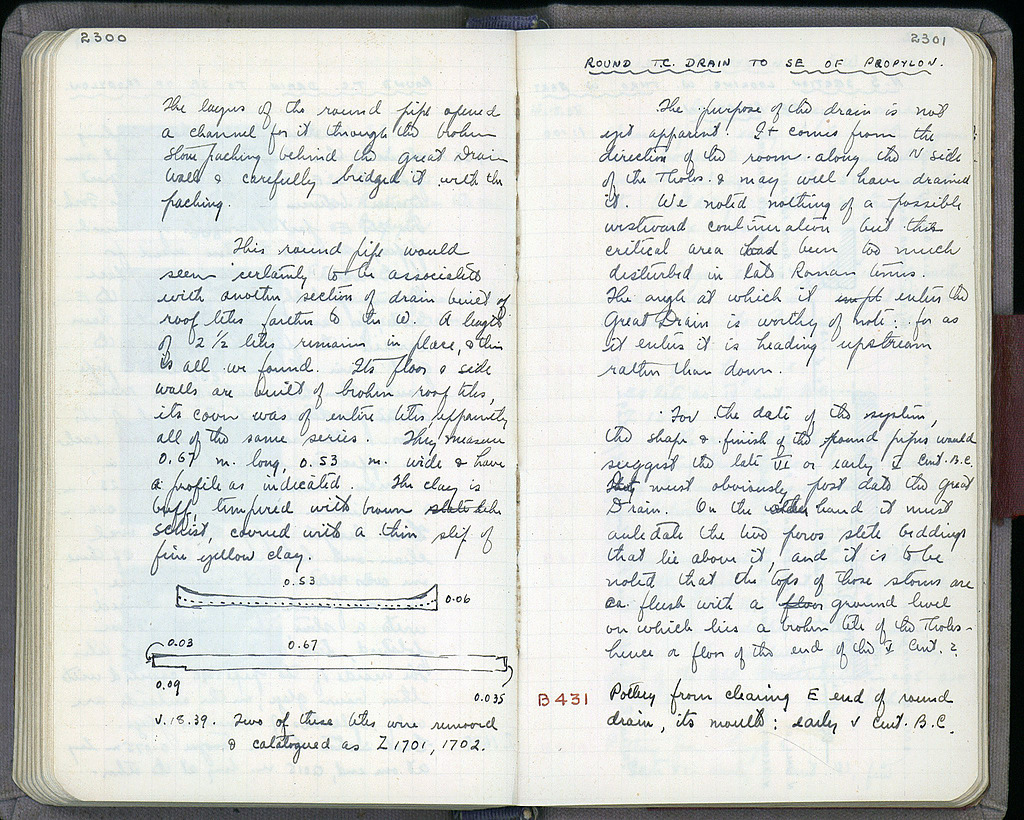 2300
The layers of the round pipe opened
a channel for it through the broken
stone packing behind the Great Drain
wall & carefully bridged it with the
packing.
This round pipe would
seem certainly to be associated
with another section of drain built of
roof tiles farther to the W. A length
of 2 1/2 tiles remains in place, & this
is all we found. Its floor & side
walls are built of broken roof tiles,
its cover was of entire tiles, apparently
all of the same series. They measure
0.67 m. long, 0.53 m. wide & have
a profile as indicated. The clay is
buff, tempered with brown slate like
schist, covered with a thin slip of
fine yellow clay.
0.53
0.06
0.03 0.67
0.09
0.035
V.18.39. Two of these tiles were removed
& catalogued as Z 1701, 1702.
2301
ROUND T.C. DRAIN TO SE OF PROPYLON.
The purpose of the drain is not
yet apparent. It comes from the
direction of the room along the N side
of the Tholos & may well have drained
it. We noted nothing of a possible
westward continuation but this
critical area had been too much
disturbed in late Roman times.
The angle at which it enters the
Great Drain is worthy of note: for as
it enters it is heading upstream
rather than down.
For the date of the system,
the shape & finish of the round pipes would
suggest the late VI or early V Cent. B.C.
They must obviously post date the Great
Drain. On the other hand it must
antedate the two poros stele beddings
that lie above it, and it is to be
noted that the tops of those stones are
ca. flush with a floor ground level
on which lies a broken tile of the Tholos -
hence a floor of the end of the V Cent.?
B431 Pottery from clearing E end of round
drain, its mouth: early V Cent. B.C.